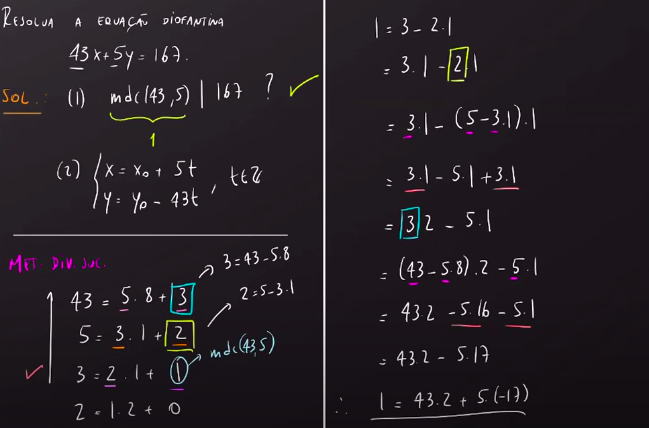 RESOLVA A EQUAÇÃO DIOFANTINA
43x+5y=167.
SOL.: (1) mdc(43,5) | 167 ?
1
(2) { x = x₀ + 5t
y = y₀ - 43t , t∈ℤ
MÉT. DIV. SUC.
3 = 43-5.8
43 = 5.8 + 3
2 = 5-3.1
5 = 3.1 + 2
mdc(43,5)
3 = 2.1 + 1
2 = 1.2 + 0
1 = 3 - 2.1
= 3.1 - 2.1
= 3.1 - (5-3.1).1
= 3.1 - 5.1 + 3.1
= 3.2 - 5.1
= (43-5.8).2 - 5.1
= 43.2 - 5.16 - 5.1
= 43.2 - 5.17
∴ 1 = 43.2 + 5.(-17)